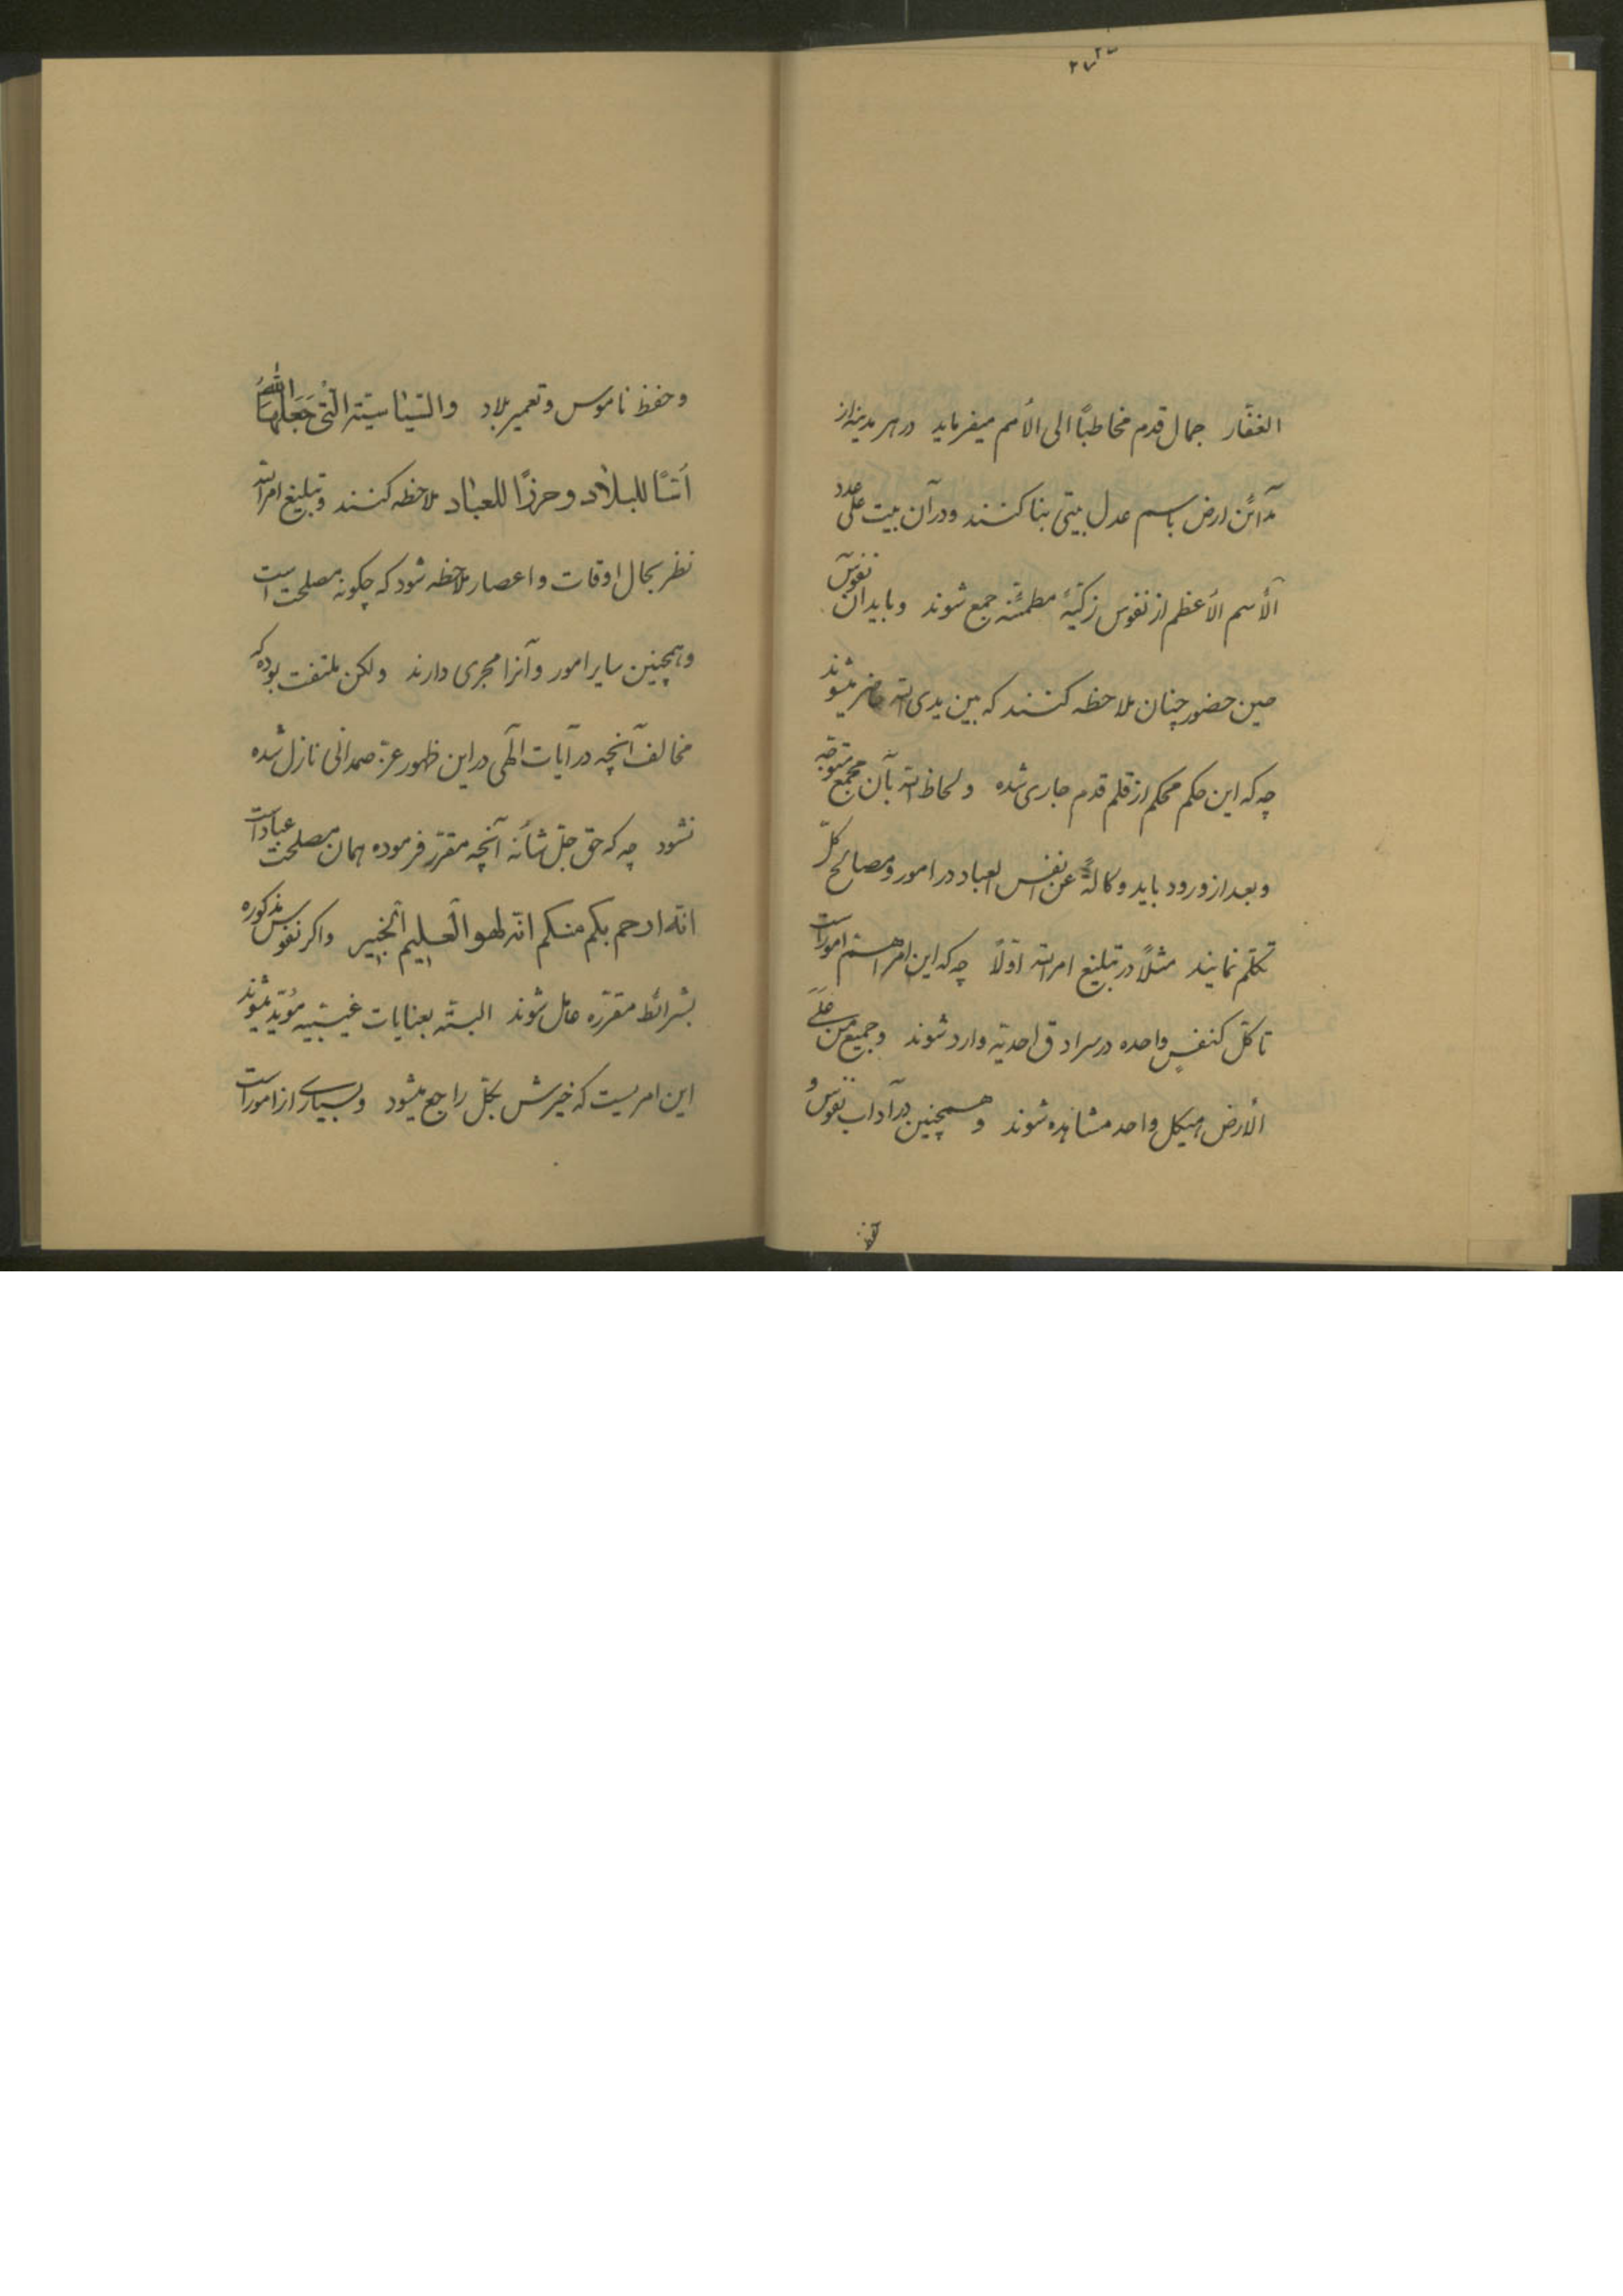 الغفّار جمال قدم مخاطبًا الی الأمم میفرماید در هر مدینه از
مدآئن ارض باسم عدل بیتی بنا کنند و در آن بیت علی عدد
الأسم الأعظم از نفوس زکیّهٔ مطمئنّه جمع شوند و باید آن نفوس
حین حضور چنان ملاحظه کنند که بین یدی الله حاضر میشوند
چه که این حکم محکم از قلم قدم جاری شده و لحاظ الله بآن مجمع متوجّه
و بعد از ورود باید وکالةً عن انفس العباد در امور و مصالح کلّ
تکلّم نمایند مثلاً در تبلیغ امر الله اوّلاً چه که این امر اهمّ امور است
تا کلّ کنفسٍ واحده در سرادق احدیّه وارد شوند و جمیع من علی
الأرض هیکل واحد مشاهده شوند و همچنین در آداب نفوس و
حفظ
و حفظ ناموس و تعمیر بلاد و السّیاسیّة الّتی جعلها الله
اُسًّا للبلاد و حرزًا للعباد ملاحظه کنند و تبلیغ امر الله
نظر بحال اوقات و اعصار ملاحظه شود که چگونه مصلحت است
و همچنین سایر امور و آنرا مجری دارند ولکن ملتفت بوده که
مخالف آنچه در آیات الهی در این ظهور عزّ صمدانی نازل شده
نشود چه که حق جلّ شأنه آنچه مقرّر فرموده همان مصلحت عباد است
انّه ارحم بکم منکم انّه لهو العلیم الخبیر و اگر نفوس مذکوره
بشرائط مقرّره عامل شوند البتّه بعنایات غیبیّه مؤیّد میشوند
این امریست که خیرش بکلّ راجع میشود و بسیاری از امور است